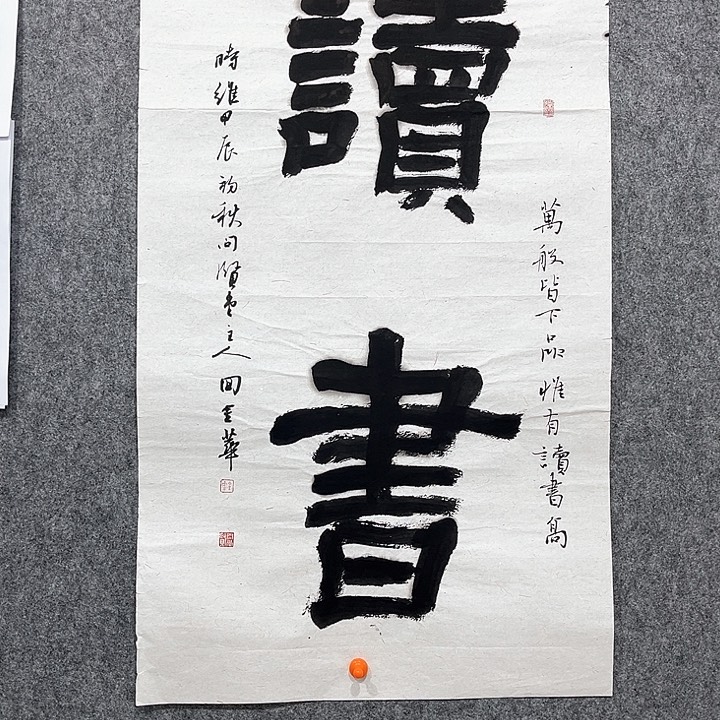 讀書
萬般皆下品惟有讀書高
時維甲辰初秋問賢堂主人田金華